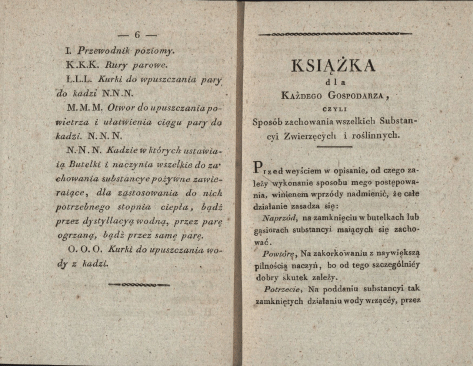 — 6 —
I. Przewodnik poziomy.
K.K.K. Rury parowe.
Ł.L.L. Kurki do wpuszczania pary
do kadzi N.N.N.
M.M.M. Otwor do upuszczania po-
wietrza i ułatwienia ciągu pary do
kadzi. N. N. N.
N..N.N. Kadzie w których ustawia-
ią Butelki i naczynia wszelkie do za-
chowania substancye pożywne zawie-
raiące, dla ząstosowania do nich
potrzebnego stopnia ciepła, bądź
przez dystyllacyą wodną, przez parę
ogrzaną, bądź przez samę parę.
O. O. O. Kurki do upuszczania wo-
dy z kadzi.
KSIĄŻKA
dla
KAŻDEGO GOSPODARZA,
CZYLI
Sposób zachowania wszelkich Substan-
cyi Zwierzęcych i roślinnych.
Przed weyściem w opisanie, od czego za-
leży wykonanie sposobu mego postępowa-
nia, winienem wprzódy nadmienić, że całe
działanie zasadza się:
Naprzód, na zamknięciu w butelkach lub
gąsiorach substancyi maiących się zacho-
wać.
Powtórę, Na zakorkowaniu z naywiększą
pilnością naczyń, bo od tego szczególniéy
dobry skutek zależy.
Potrzecie, Na poddaniu substancyi tak
zamkniętych działaniu wody wrzącéy, przez